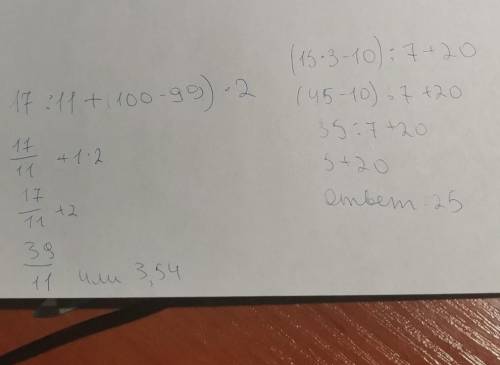 17 : 11 + (100 - 99) · 2
17/11 + 1 · 2
17/11 + 2
39/11 или 3,54
(15 · 3 - 10) : 7 + 20
(45 - 10) : 7 + 20
35 : 7 + 20
5 + 20
Ответ: 25